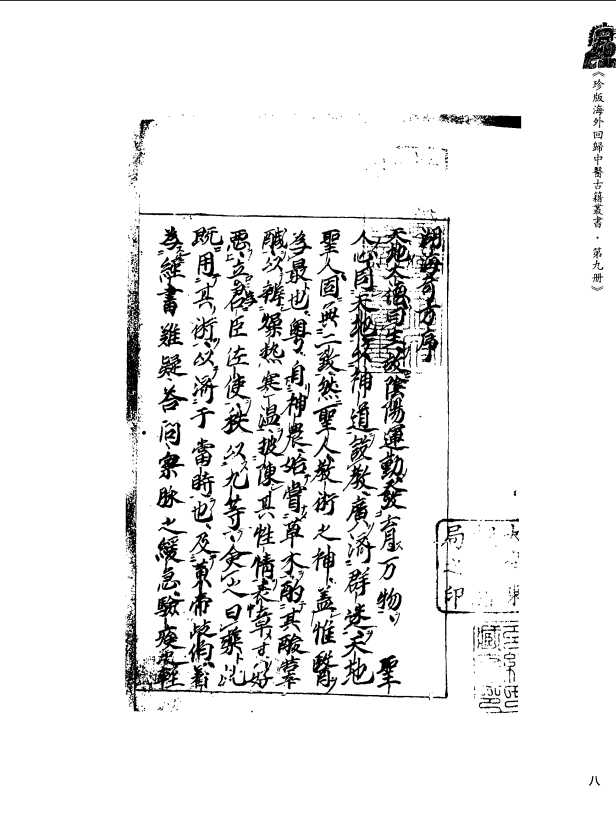 《珍版海外回歸中醫古籍叢書·第九册》
湖海奇方序
天地大德曰生故陰陽運動發育万物聖
人心同天地以神道設教廣済群迷天地
聖人固無二致然聖人教術之神盖惟醫
為最也粤自神農始嘗草木酌其酸
鹹以辨燥热寒温披陳其性情
惡立君臣佐使秩以九等命之曰藥
既用其術以済于當時也及黄帝岐伯
為經書難疑答问察脉之緩急驗
局之印
八